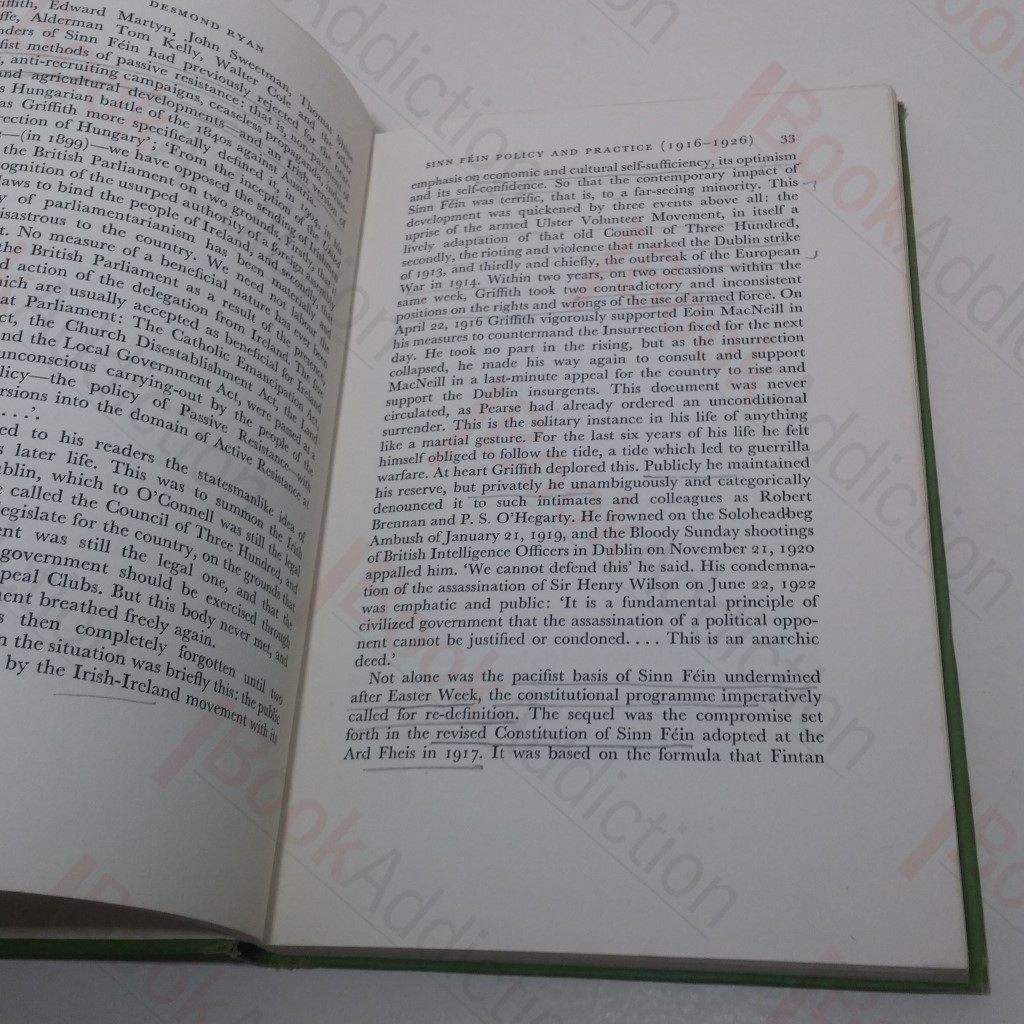 DESMOND RYAN
Edward Martyn, John Sweetman, Thomas
Alderman Tom Kelly, Walter Cole and
of Sinn Féin had previously rejected for
methods of passive resistance: that is, non-payment
anti-recruiting campaigns, ceaseless propaganda,
and agricultural developments—and an Irish version
Hungarian battle of the 1840s against Austria.
as Griffith more specifically defined it, in 1904 in his
of Hungary': 'From the inception of the
(in 1899)—we have opposed the sending of Irishmen
the British Parliament on two grounds. Firstly, that
of the usurped authority of a foreign assembly
laws to bind the people of Ireland, and secondly, that
of parliamentarianism has been materially and
disastrous to the country. We need not labour the
No measure of a beneficial nature has ever been
the British Parliament as a result of the presence
action of the delegation from Ireland. The five
which are usually accepted as beneficial for Ireland
at Parliament: The Catholic Emancipation Act,
the Church Disestablishment Act, the Land
and the Local Government Act, were passed as a
unconscious carrying-out by the people of the
policy—the policy of Passive Resistance—with
into the domain of Active Resistance at
. . . .'.
to his readers the statesmanlike idea of
later life. This was to summon the Irish
which to O'Connell was still the legal
called the Council of Three Hundred, and
legislate for the country, on the grounds that
was still the legal one, and that the
government should be exercised through
Clubs. But this body never met, and
breathed freely again.
then completely forgotten until two
the situation was briefly this: the public
by the Irish-Ireland movement with its
SINN FÉIN POLICY AND PRACTICE (1916–1926) 33
emphasis on economic and cultural self-sufficiency, its optimism
and its self-confidence. So that the contemporary impact of
Sinn Féin was terrific, that is, to a far-seeing minority. This
development was quickened by three events above all: the
uprise of the armed Ulster Volunteer Movement, in itself a
lively adaptation of that old Council of Three Hundred,
secondly, the rioting and violence that marked the Dublin strike
of 1913, and thirdly and chiefly, the outbreak of the European
War in 1914. Within two years, on two occasions within the
same week, Griffith took two contradictory and inconsistent
positions on the rights and wrongs of the use of armed force. On
April 22, 1916 Griffith vigorously supported Eoin MacNeill in
his measures to countermand the Insurrection fixed for the next
day. He took no part in the rising, but as the insurrection
collapsed, he made his way again to consult and support
MacNeill in a last-minute appeal for the country to rise and
support the Dublin insurgents. This document was never
circulated, as Pearse had already ordered an unconditional
surrender. This is the solitary instance in his life of anything
like a martial gesture. For the last six years of his life he felt
himself obliged to follow the tide, a tide which led to guerrilla
warfare. At heart Griffith deplored this. Publicly he maintained
his reserve, but privately he unambiguously and categorically
denounced it to such intimates and colleagues as Robert
Brennan and P. S. O'Hegarty. He frowned on the Soloheadbeg
Ambush of January 21, 1919, and the Bloody Sunday shootings
of British Intelligence Officers in Dublin on November 21, 1920
appalled him. 'We cannot defend this' he said. His condemna-
tion of the assassination of Sir Henry Wilson on June 22, 1922
was emphatic and public: 'It is a fundamental principle of
civilized government that the assassination of a political oppo-
nent cannot be justified or condoned. . . . This is an anarchic
deed.'
Not alone was the pacifist basis of Sinn Féin undermined
after Easter Week, the constitutional programme imperatively
called for re-definition. The sequel was the compromise set
forth in the revised Constitution of Sinn Féin adopted at the
Ard Fheis in 1917. It was based on the formula that Fintan
BookAddiction